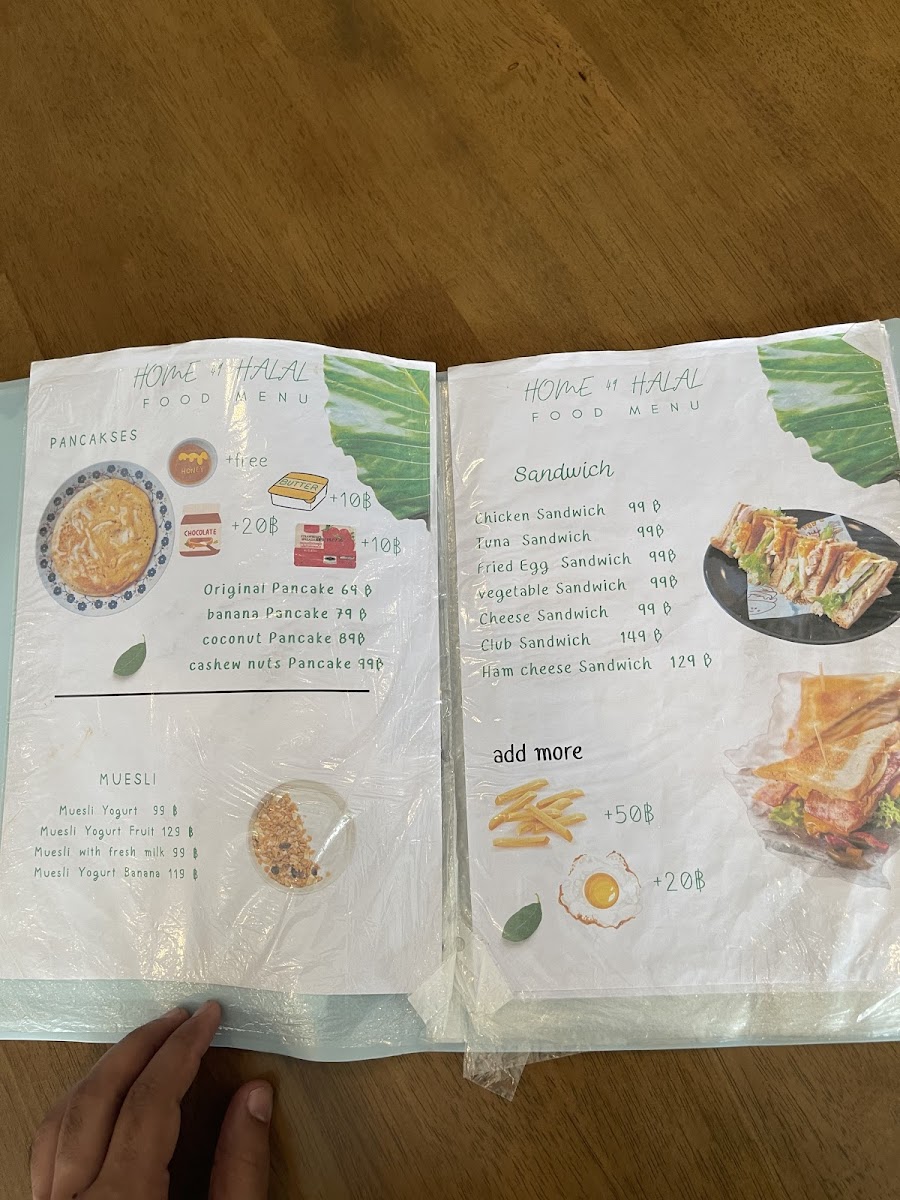 HOME 49 HALAL
FOOD MENU
PANCAKSES
HONEY
+free
BUTTER
+10฿
CHOCOLATE
+20฿
+10฿
Original Pancake 69 ฿
banana Pancake 79 ฿
coconut Pancake 89฿
cashew nuts Pancake 99฿
MUESLI
Muesli Yogurt 99 ฿
Muesli Yogurt Fruit 129 ฿
Muesli with fresh milk 99 ฿
Muesli Yogurt Banana 119 ฿
HOME 49 HALAL
FOOD MENU
Sandwich
Chicken Sandwich 99 ฿
Tuna Sandwich 99฿
Fried Egg Sandwich 99฿
vegetable Sandwich 99฿
Cheese Sandwich 99 ฿
Club Sandwich 149 ฿
Ham cheese Sandwich 129 ฿
add more
+50฿
+20฿